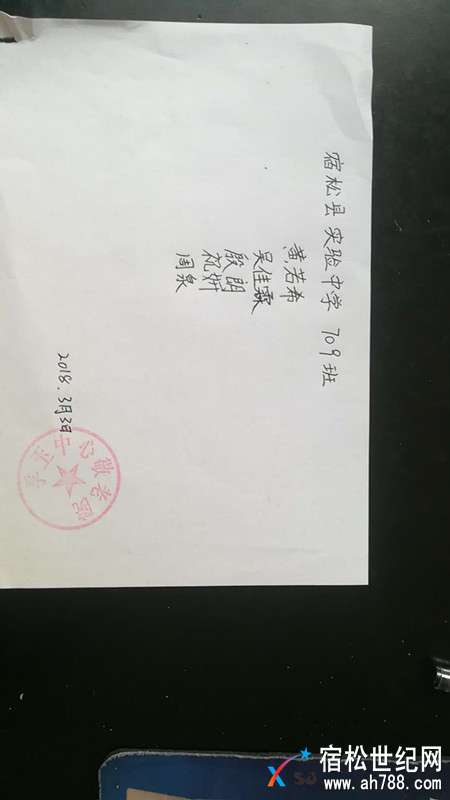 宿松县实验中学 709班
黄若希
吴佳霖
殷朗
祝妍
周泉
2018.3月3日
孚玉中心敬老院
宿松世纪网
www.ah788.com